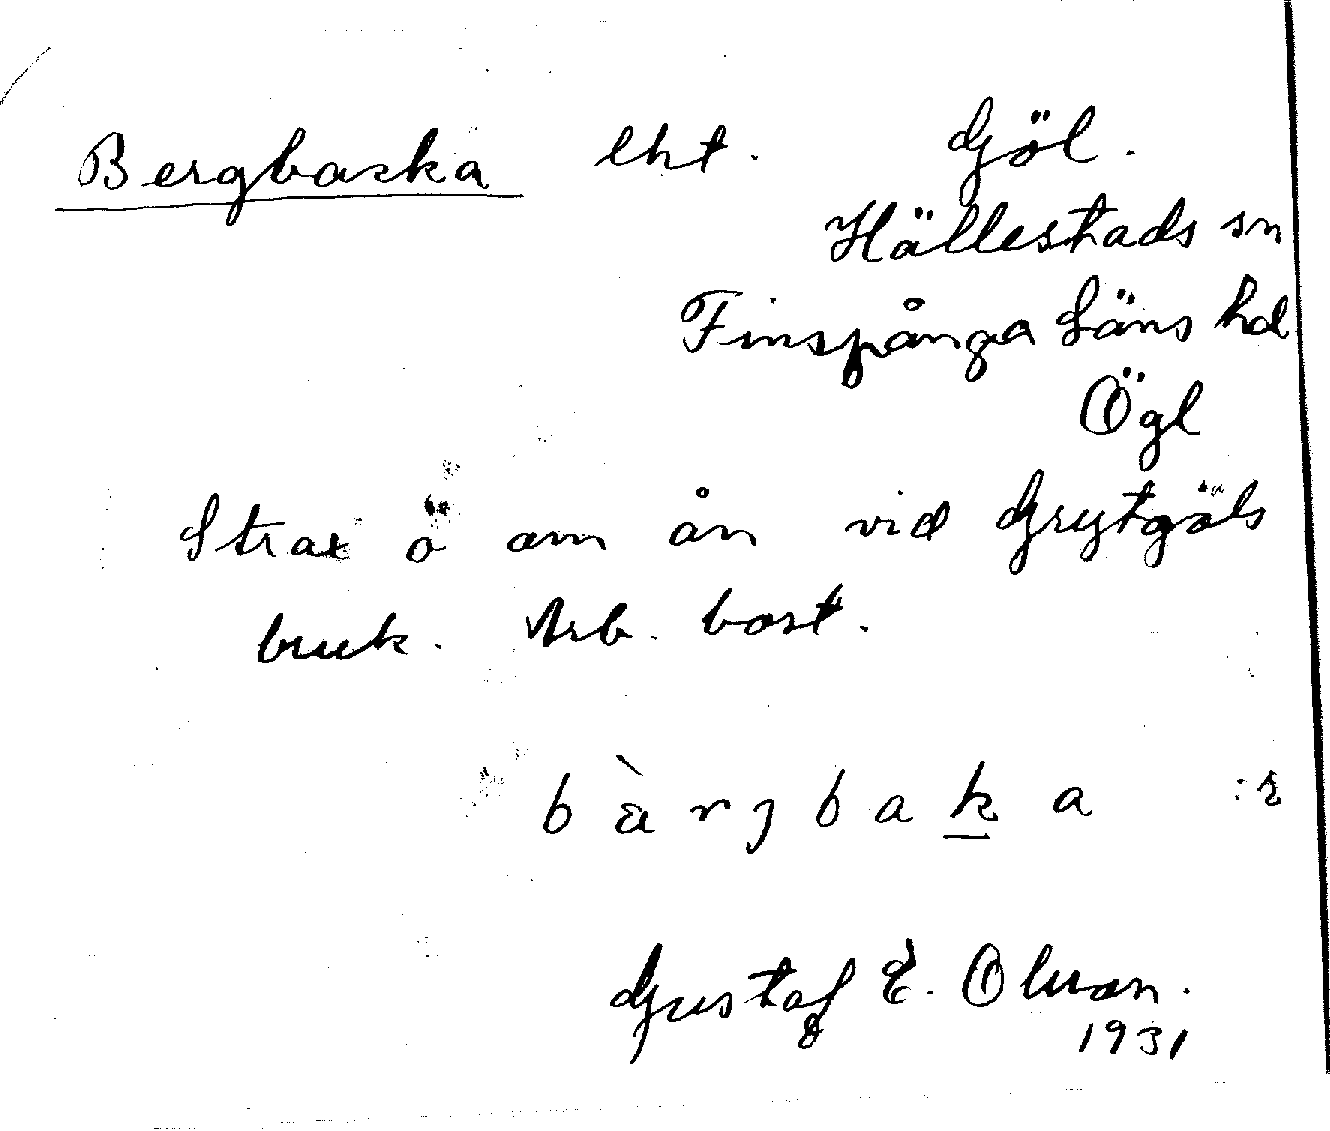 Bergbacka lht. Gjöl.
Hällestads sn
Finspånga läns hd
Ögl
Strax ö om ån vid Grytgöls
bruk. Arb. bost.
bàrjbaka :r
Gustaf E. Olsson.
1931